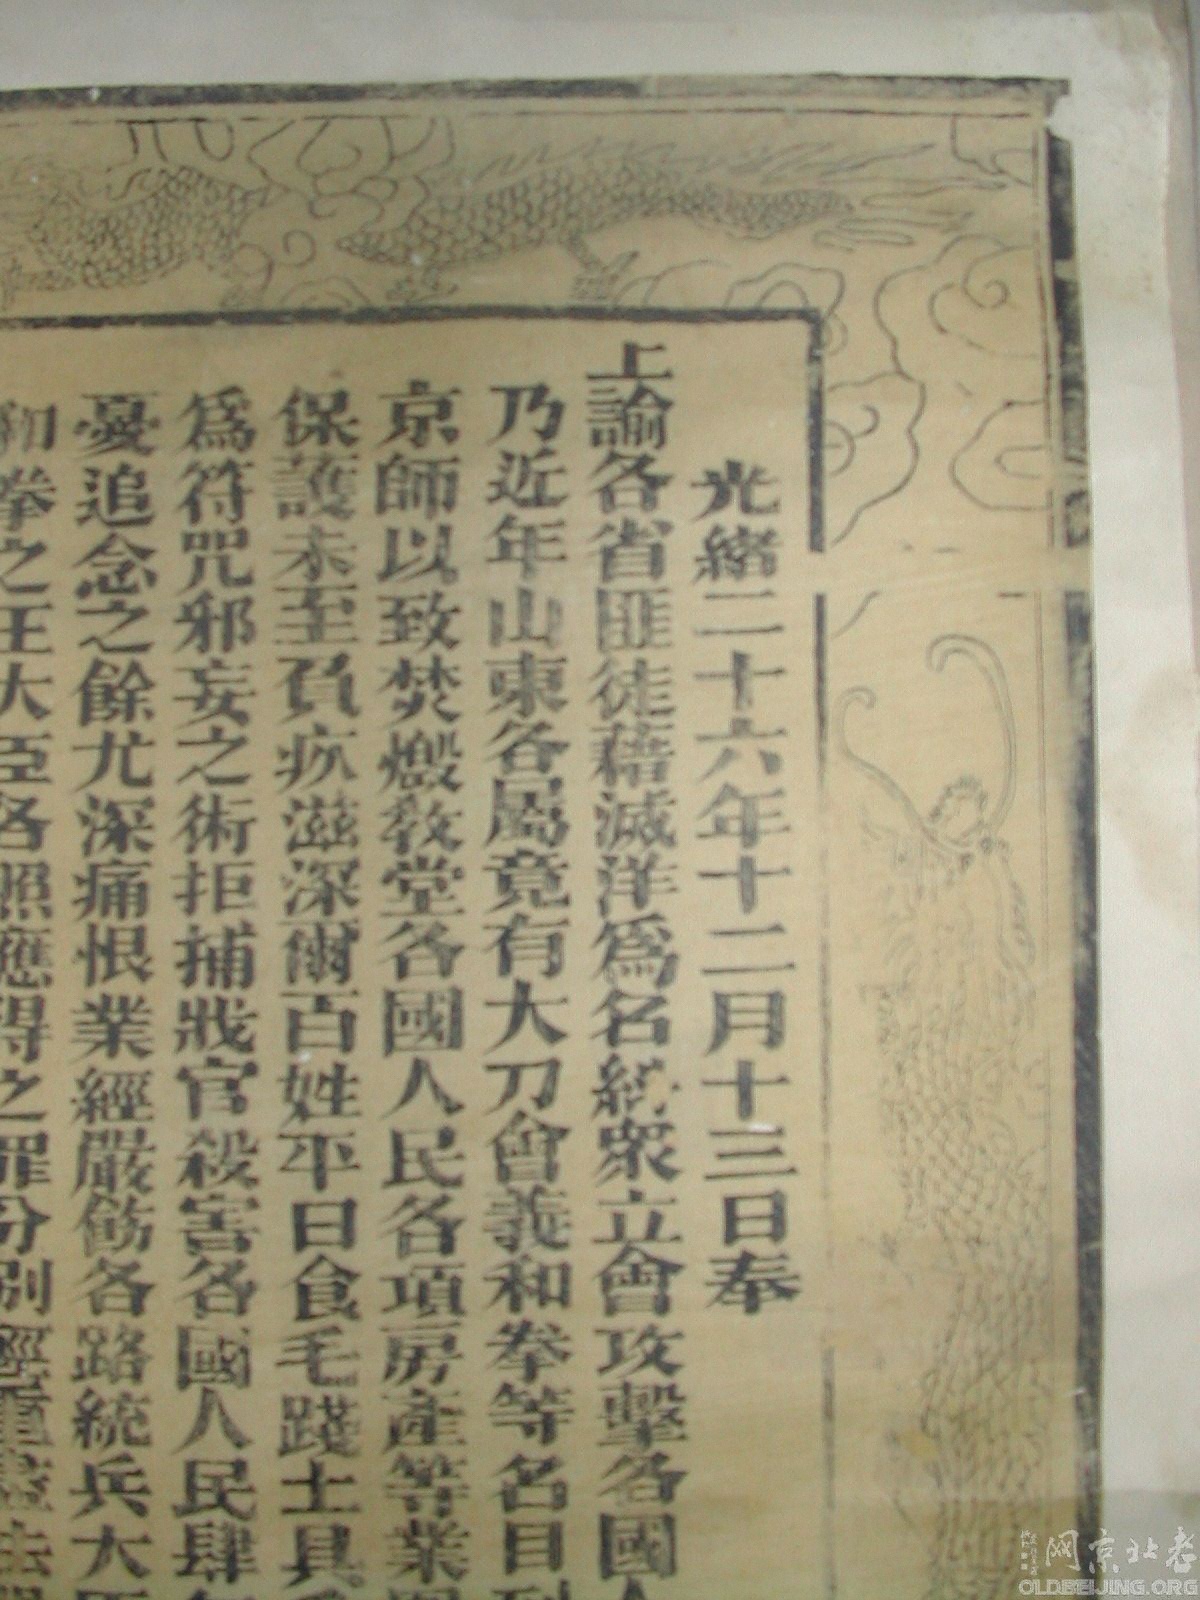 光緒二十六年十二月十三日奉
上諭各省匪徒藉滅洋爲名糾衆立會攻擊各國人
乃近年山東各屬竟有大刀會義和拳等名目到
京師以致焚燬教堂各國人民各項房產等業
保護未至負疚滋深爾百姓平日食毛踐土具
爲符咒邪妄之術拒捕戕官殺害各國人民肆
憂追念之餘尤深痛恨業經嚴飭各路統兵大
和拳之王大臣各照應得之罪分別
老北京网
OLDBEIJING.ORG